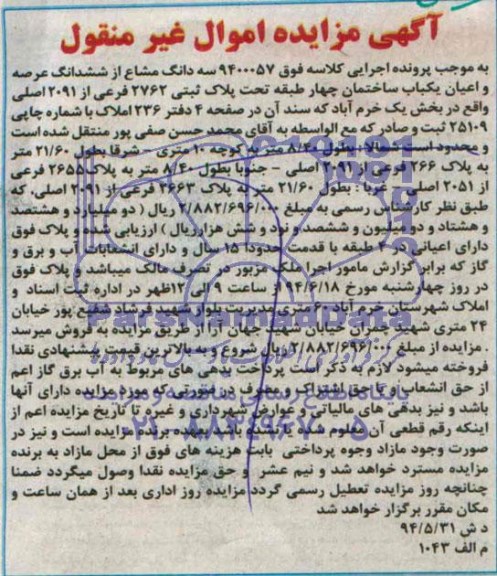 آگهی مزایده اموال غیر منقول
به موجب پرونده اجرایی کلاسه فوق ۹۴۰۰۰۵۷ سه دانگ مشاع از ششدانگ عرصه
و اعیان یکباب ساختمان چهار طبقه تحت پلاک ثبتی ۲۷۶۲ فرعی از ۲۰۹۱ اصلی
واقع در بخش یک خرم آباد که سند آن در صفحه ۴ دفتر ۲۳۶ املاک با شماره چاپی
۲۵۱۰۹ ثبت و صادر که مع الواسطه به آقای محمد حسن صفی پور منتقل شده است
و محدود است شمالا: بطول ۸/۴۰ متر به کوچه ۱۰ متری - شرقا بطول ۲۱/۶۰ متر
به پلاک ۲۶۶ فرعی از ۲۰۹۱ اصلی - جنوبا بطول ۸/۴۰ متر به پلاک ۲۶۵۵ فرعی
از ۲۰۵۱ اصلی - غربا : بطول ۲۱/۶۰ متر به پلاک ۲۶۶۳ فرعی از ۲۰۹۱ اصلی، که
طبق نظر کارشناس رسمی به مبلغ ۲/۸۸۲/۶۹۶/۰۰۰ ریال ( دو میلیارد و هشتصد
و هشتاد و دو میلیون و ششصد و نود و شش هزار ریال ) ارزیابی شده و پلاک فوق
دارای اعیانی در ۴ طبقه با قدمت حدود ۱۵ سال و دارای انشعابات آب و برق و
گاز که برابر گزارش مامور اجرا ملک مزبور در تصرف مالک میباشد و پلاک فوق
در روز چهارشنبه مورخ ۹۴/۶/۱۸ از ساعت ۹ الی ۱۲ ظهر در اداره ثبت اسناد و
املاک شهرستان خرم آباد ۶۰ متری مدیریت بلوار شهید فرشاد شفیع پور خیابان
۲۴ متری شهید چمران خیابان شهید جهان آرا از طریق مزایده به فروش میرسد
. مزایده از مبلغ ۲/۸۸۲/۶۹۶/۰۰۰ ریال شروع و به بالاترین قیمت پیشنهادی نقدا
فروخته میشود لازم به ذکر است پرداخت بدهی های مربوط به آب برق گاز اعم
از حق انشعاب و یا حق اشتراک و مصرف در صورتی که مورد مزایده دارای آنها
باشد و نیز بدهی های مالیاتی و عوارض شهرداری و غیره تا تاریخ مزایده اعم از
اینکه رقم قطعی آن معلوم شده یا نشده باشد بعهده برنده مزایده است و نیز در
صورت وجود مازاد وجوه پرداختی بابت هزینه های فوق از محل مازاد به برنده
مزایده مسترد خواهد شد و نیم عشر و حق مزایده نقدا وصول میگردد ضمنا
چنانچه روز مزایده تعطیل رسمی گردد مزایده روز اداری بعد از همان ساعت و
مکان مقرر برگزار خواهد شد
د ش ۹۴/۵/۳۱
م الف ۱۰۴۳
ParsNamadData
۰۲۱-۸۸۳۴۹۶۷۰-۵